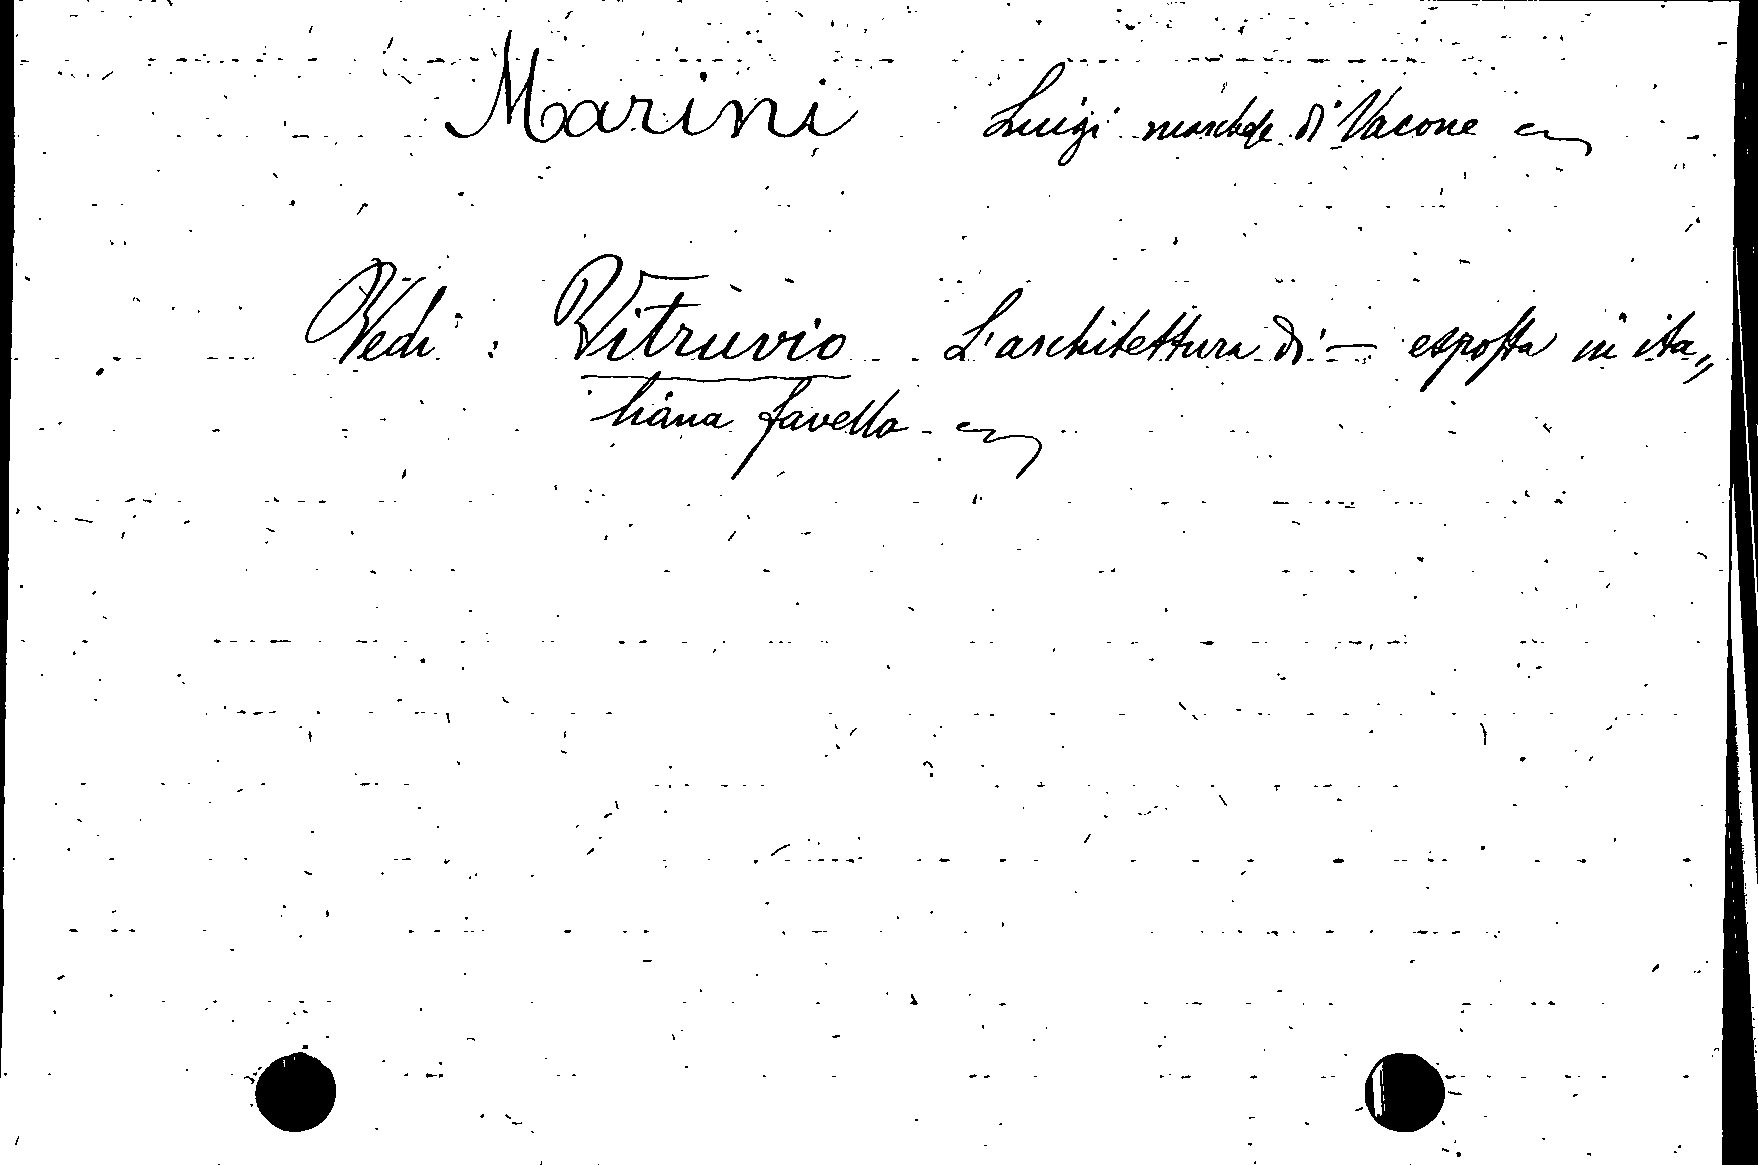 Marini Luigi marchese di Vacone
Vedi: Vitruvio L'architettura di — esposta in ita„
liana favella